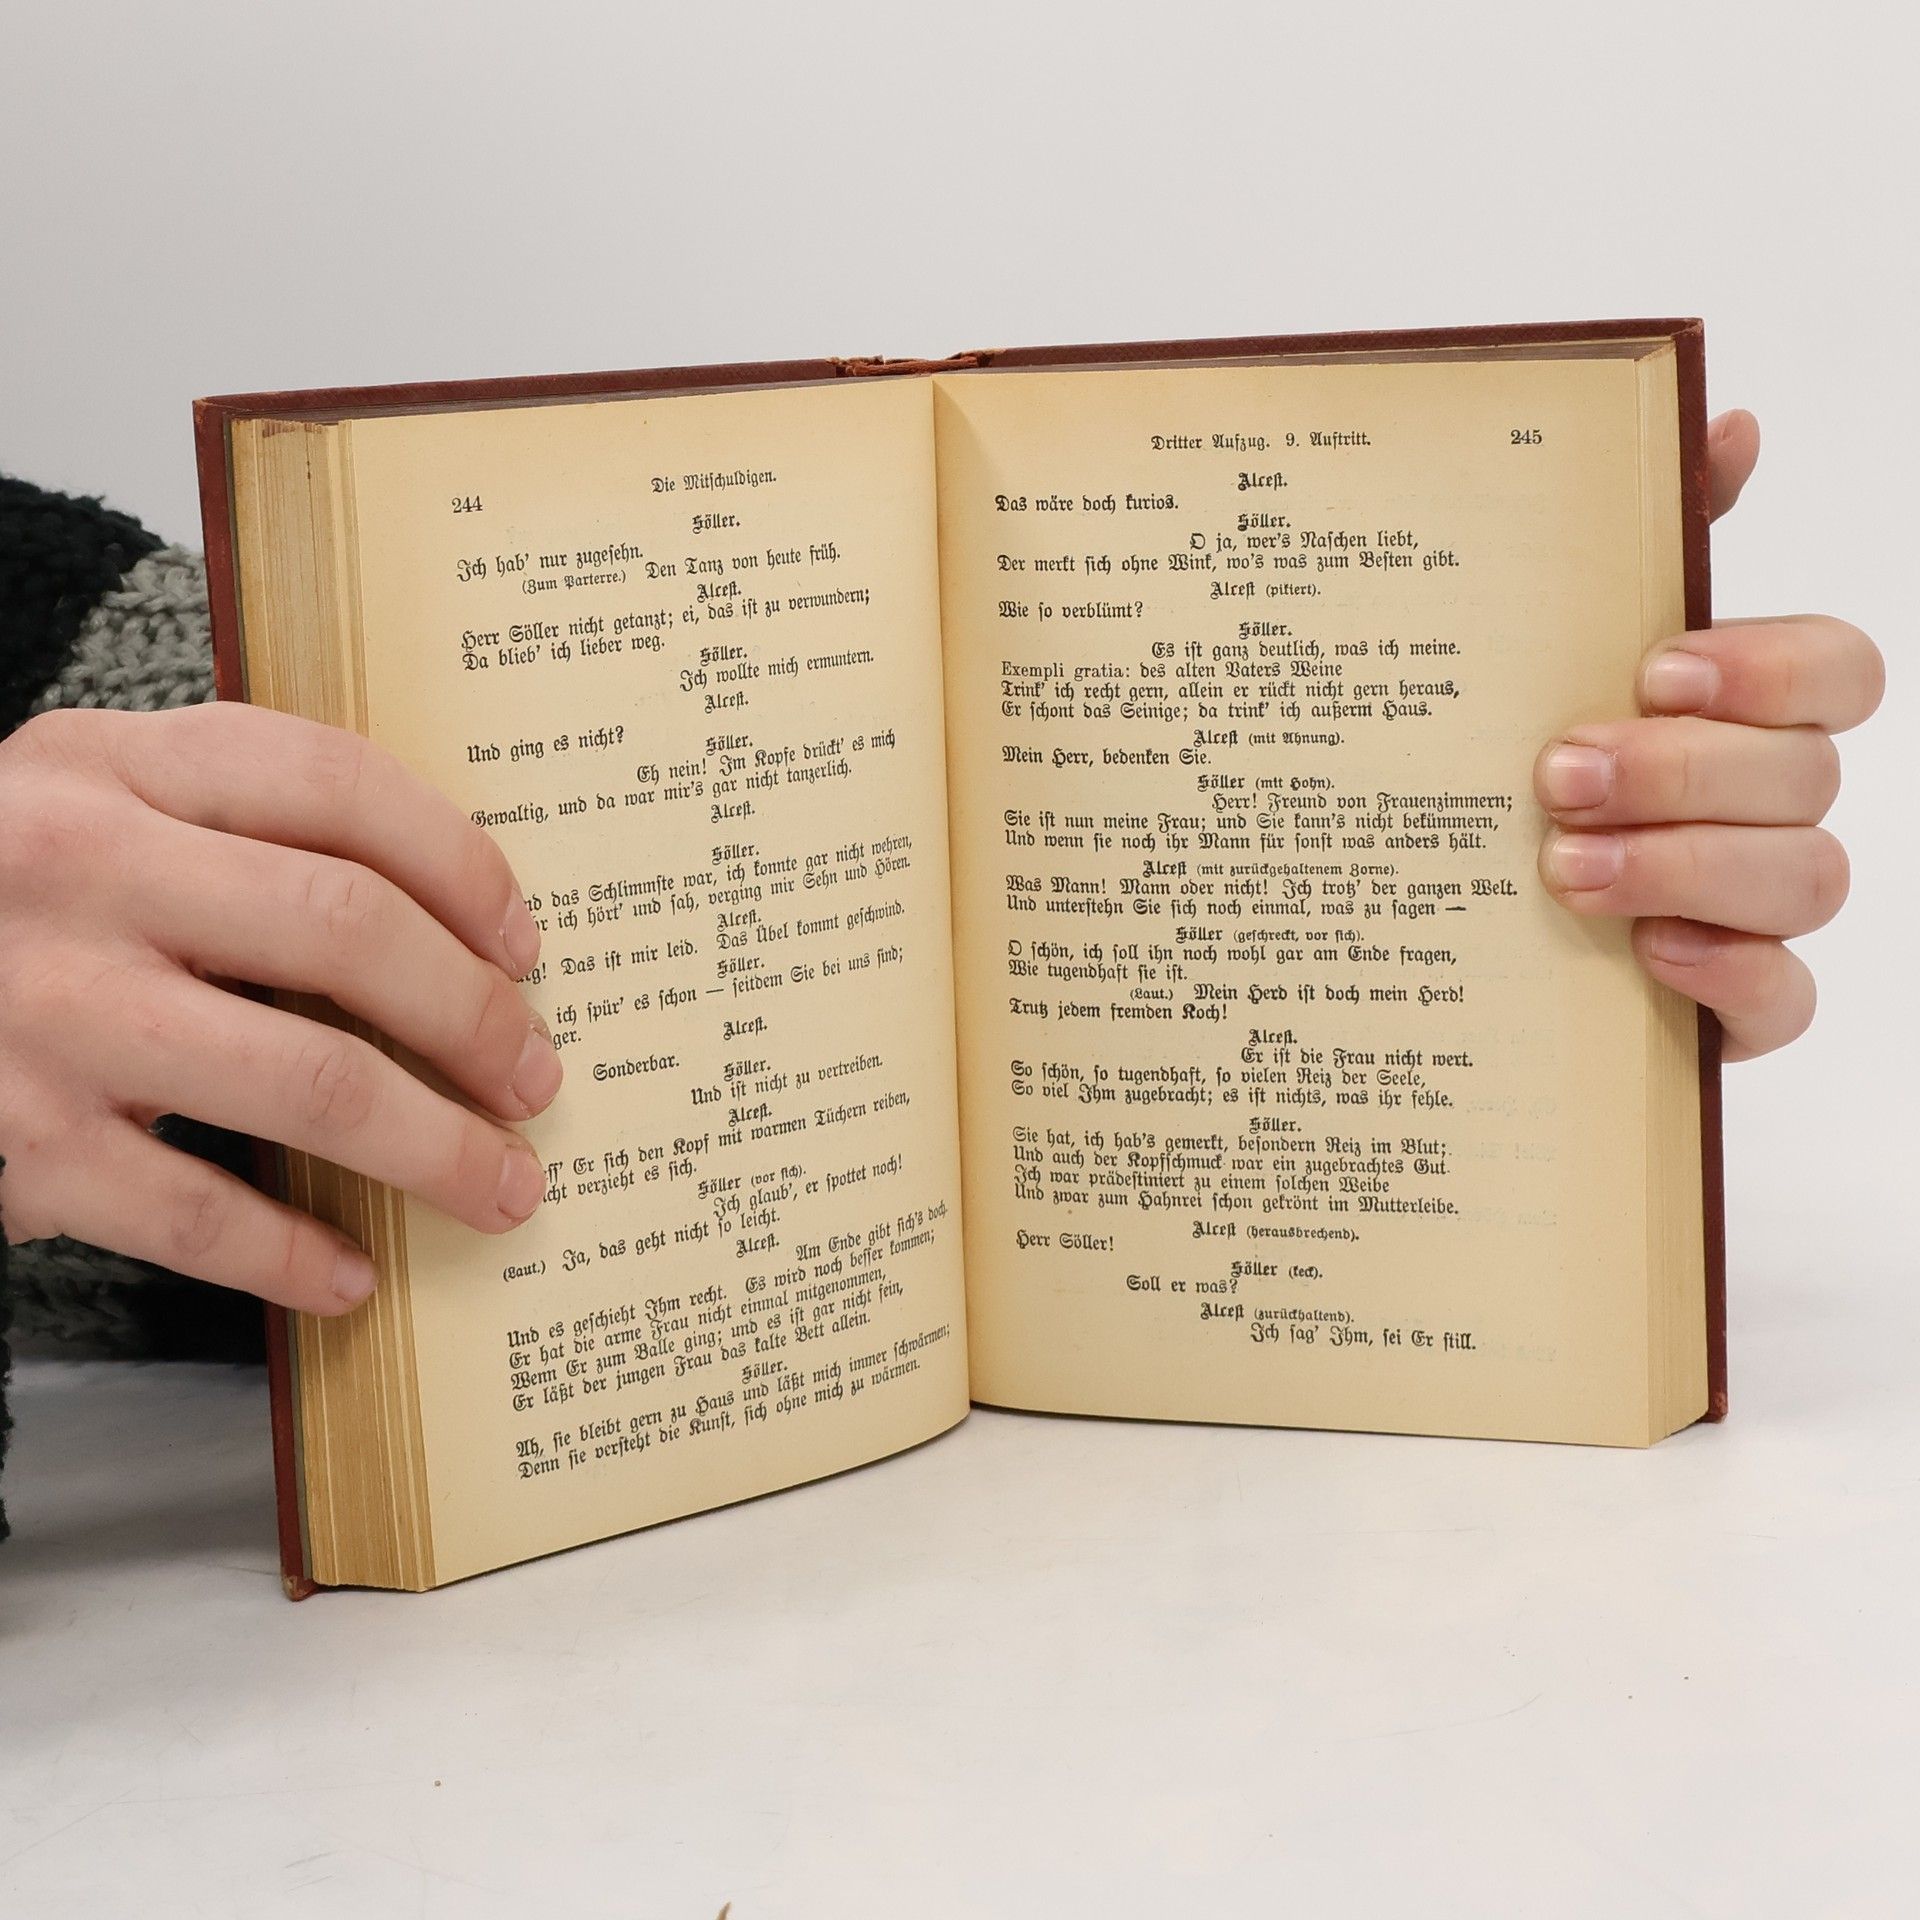 244
Die Mitschuldigen.
Söller.
Ich hab' nur zugesehn.
(Zum Parterre.) Den Tanz von heute früh.
Alcest.
Herr Söller nicht getanzt; ei, das ist zu verwundern;
Da blieb' ich lieber weg.
Söller.
Ich wollte mich ermuntern.
Alcest.
Und ging es nicht?
Söller.
Eh nein! Im Kopfe drückt' es mich
Gewaltig, und da war mir's gar nicht tanzerlich.
Alcest.
Söller.
das Schlimmste war, ich konnte gar nicht wehren,
ich hört' und sah, verging mir Sehn und Hören.
Alcest.
Das ist mir leid. Das Übel kommt geschwind.
Söller.
ich spür' es schon — seitdem Sie bei uns sind;
Alcest.
Sonderbar.
Söller.
Und ist nicht zu vertreiben.
Alcest.
Er sich den Kopf mit warmen Tüchern reiben,
verzieht es sich.
Söller (vor sich).
Ich glaub', er spottet noch!
(Laut.) Ja, das geht nicht so leicht.
Alcest.
Am Ende gibt sich's doch.
Und es geschieht Ihm recht. Es wird noch besser kommen;
Er hat die arme Frau nicht einmal mitgenommen,
Wenn Er zum Balle ging; und es ist gar nicht fein,
Er läßt der jungen Frau das kalte Bett allein.
Söller.
Ah, sie bleibt gern zu Haus und läßt mich immer schwärmen;
Denn sie versteht die Kunst, sich ohne mich zu wärmen.
Dritter Aufzug. 9. Auftritt.
245
Alcest.
Das wäre doch kurios.
Söller.
O ja, wer's Naschen liebt,
Der merkt sich ohne Wink, wo's was zum Besten gibt.
Alcest (pikiert).
Wie so verblümt?
Söller.
Es ist ganz deutlich, was ich meine.
Exempli gratia: des alten Vaters Weine
Trink' ich recht gern, allein er rückt nicht gern heraus,
Er schont das Seinige; da trink' ich außerm Haus.
Alcest (mit Ahnung).
Mein Herr, bedenken Sie.
Söller (mit Hohn).
Herr! Freund von Frauenzimmern;
Sie ist nun meine Frau; und Sie kann's nicht bekümmern,
Und wenn sie noch ihr Mann für sonst was anders hält.
Alcest (mit zurückgehaltenem Zorne).
Was Mann! Mann oder nicht! Ich trotz' der ganzen Welt.
Und unterstehn Sie sich noch einmal, was zu sagen —
Söller (geschreckt, vor sich).
O schön, ich soll ihn noch wohl gar am Ende fragen,
Wie tugendhaft sie ist.
(Laut.) Mein Herd ist doch mein Herd!
Trutz jedem fremden Koch!
Alcest.
Er ist die Frau nicht wert.
So schön, so tugendhaft, so vielen Reiz der Seele,
So viel Ihm zugebracht; es ist nichts, was ihr fehle.
Söller.
Sie hat, ich hab's gemerkt, besondern Reiz im Blut;
Und auch der Kopfschmuck war ein zugebrachtes Gut.
Ich war prädestiniert zu einem solchen Weibe
Und zwar zum Hahnrei schon gekrönt im Mutterleibe.
Alcest (herausbrechend).
Herr Söller!
Söller (keck).
Soll er was?
Alcest (zurückhaltend).
Ich sag' Ihm, sei Er still.